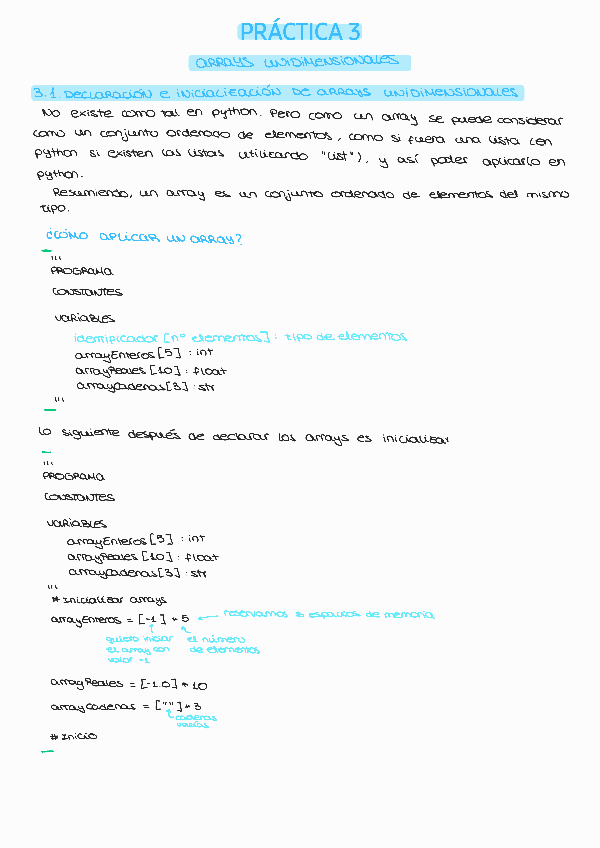 PRÁCTICA 3
ARRAYS UNIDIMENSIONALES
3.1. DECLARACIÓN E INICIALIZACIÓN DE ARRAYS UNIDIMENSIONALES
No existe como tal en python. Pero como un array se puede considerar
como un conjunto ordenado de elementos, como si fuera una lista (en
python si existen las listas utilizando "list"), y así poder aplicarlo en
python.
Resumiendo, un array es un conjunto ordenado de elementos del mismo
tipo.
¿CÓMO APLICAR UN ARRAY?
'''
PROGRAMA
CONSTANTES
VARIABLES
identificador [nº elementos] : tipo de elementos
arrayEnteros [5] : int
arrayReales [10] : float
arrayCadenas [3] : str
'''
Lo siguiente después de declarar los arrays es inicializar
'''
PROGRAMA
CONSTANTES
VARIABLES
arrayEnteros [5] : int
arrayReales [10] : float
arrayCadenas [3] : str
'''
# Inicializar arrays
arrayEnteros = [-1] * 5 ← reservamos 5 espacios de memoria
quiero iniciar el número
el array con de elementos
valor -1
arrayReales = [-1.0] * 10
arrayCadenas = [""] * 3
cadenas
vacías
# Inicio